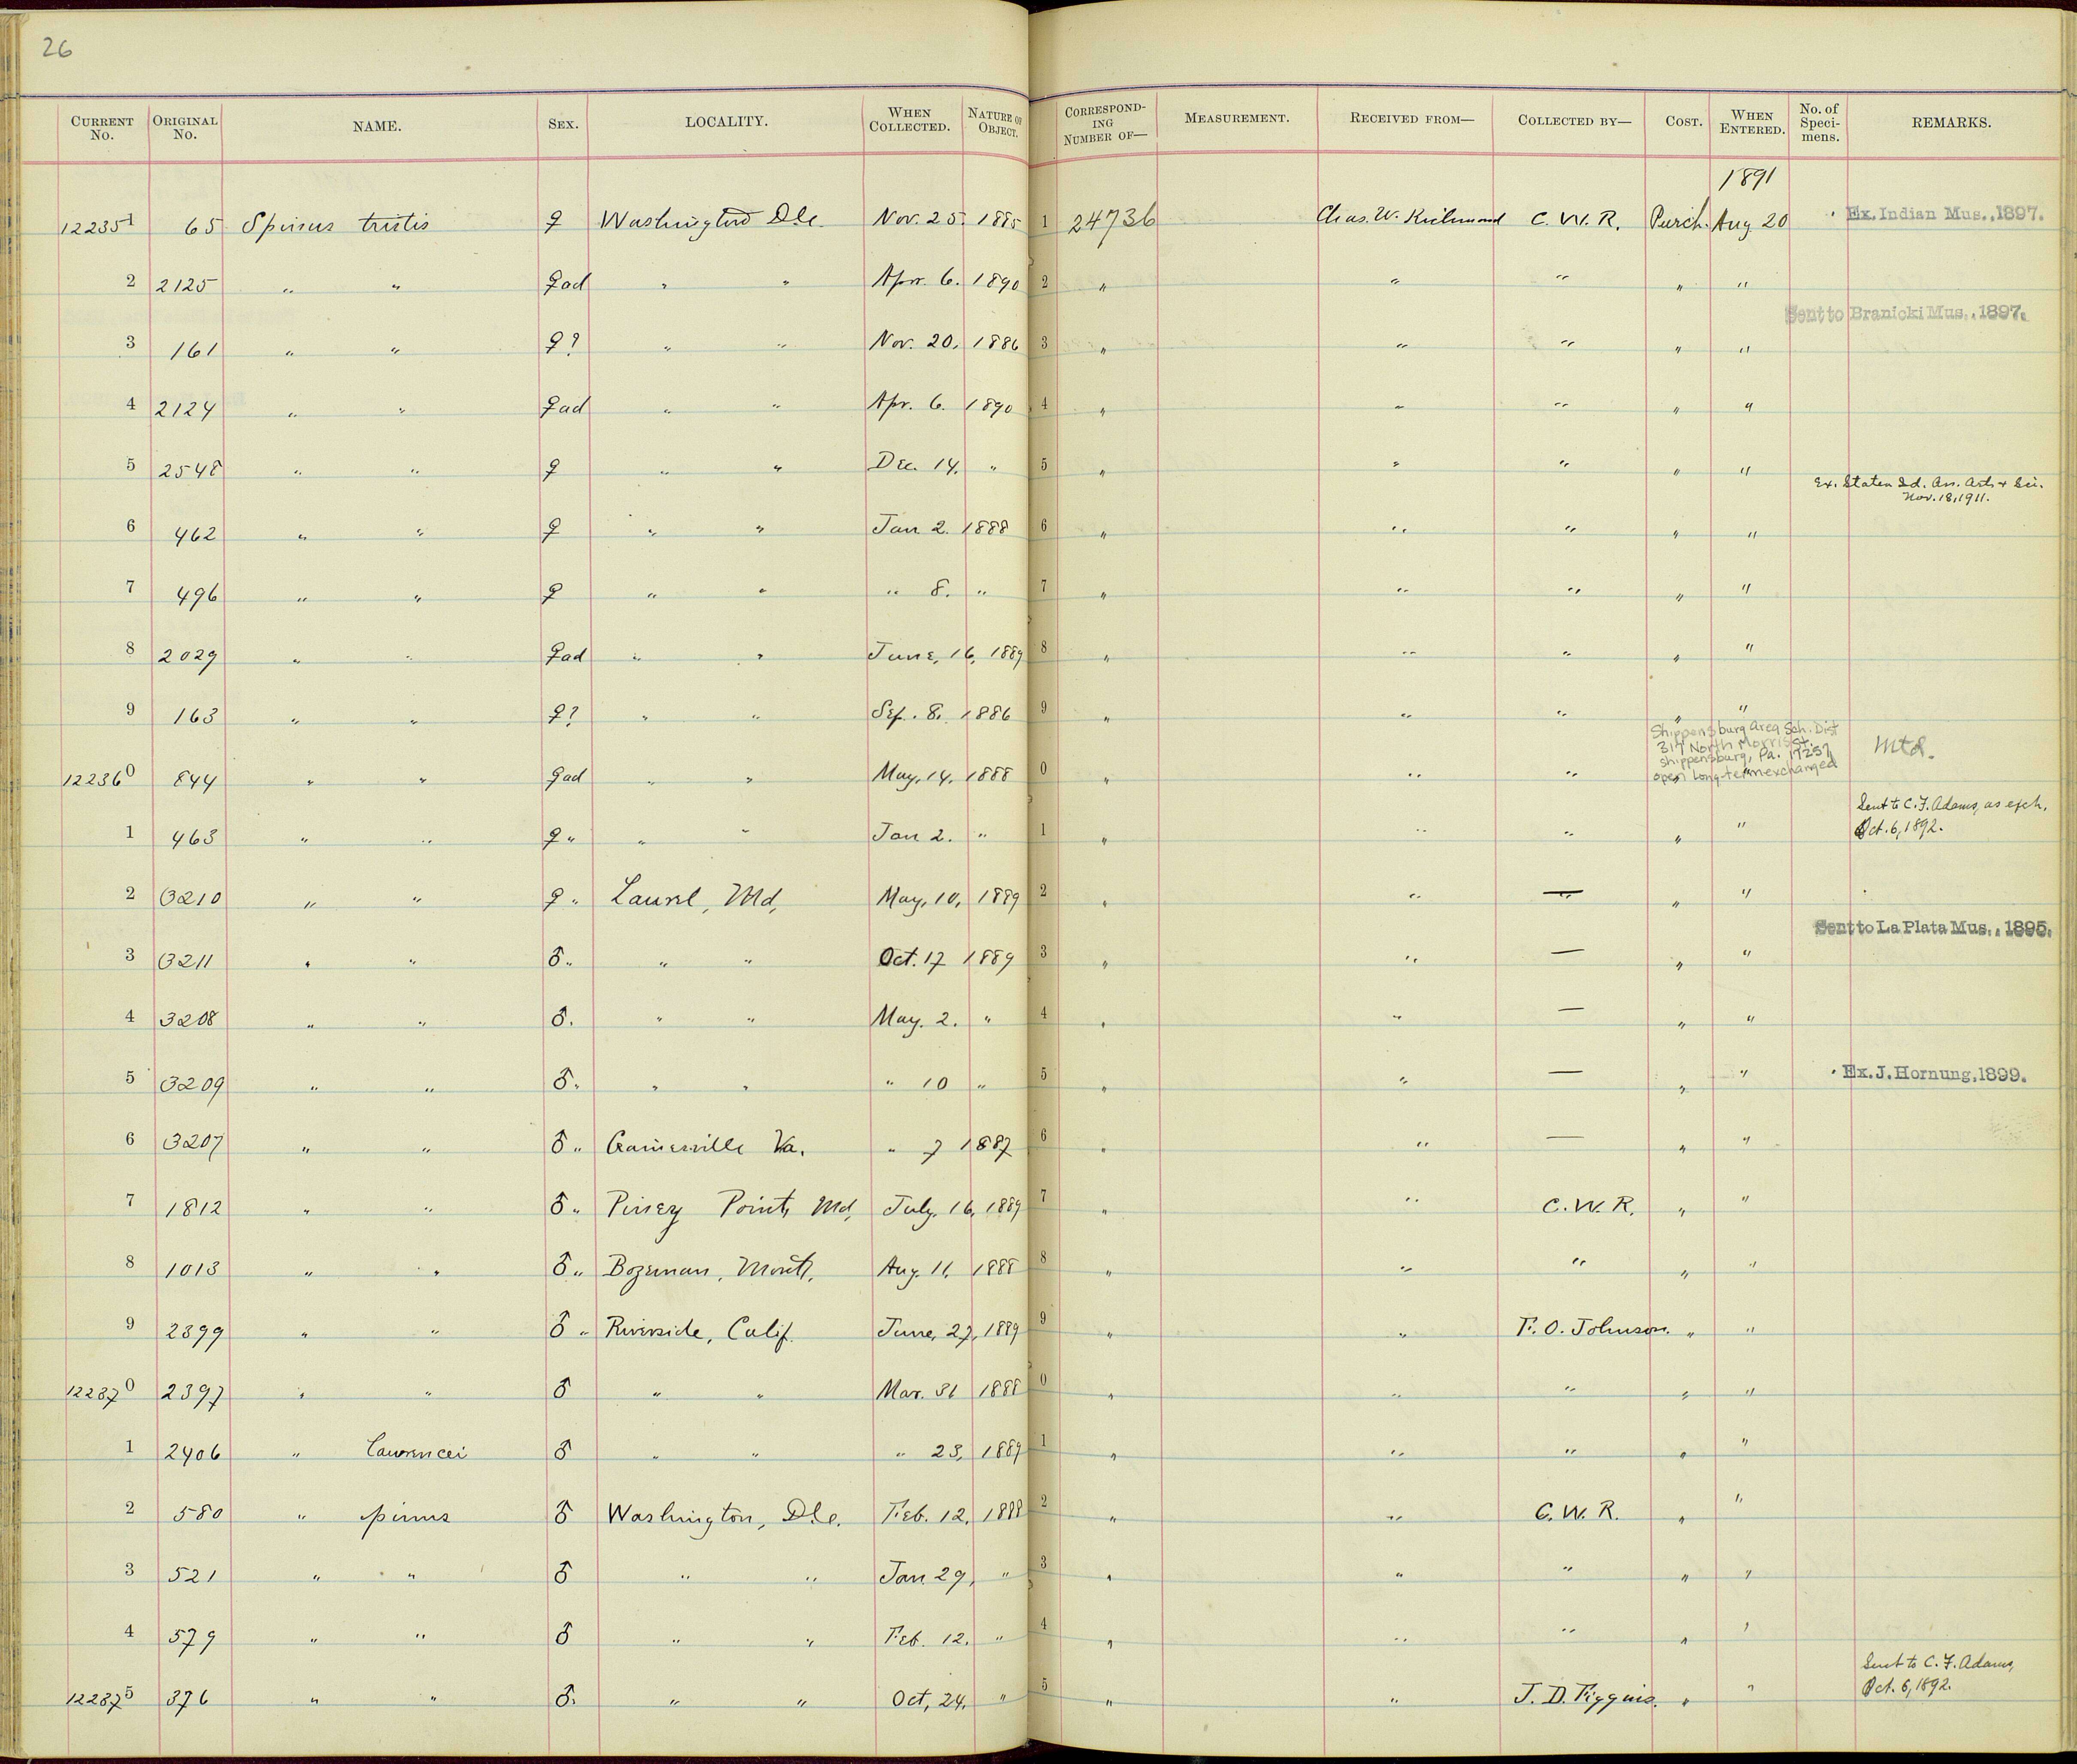 26
CURRENT No. ORIGINAL No. NAME. SEX. LOCALITY. WHEN COLLECTED. NATURE OF OBJECT. CORRESPONDING NUMBER OF— MEASUREMENT. RECEIVED FROM— COLLECTED BY— COST. WHEN ENTERED. No. of Specimens. REMARKS.
1891
122351 65 Spinus tristis ♀ Washington D.C. Nov. 25. 1885 1 24736 Chas. W. Richmond C. W. R. Purch. Aug 20 Ex. Indian Mus., 1897.
2 2125 " " ♀ad " " Apr. 6. 1890 2 " " " " "
Sent to Branicki Mus., 1897.
3 161 " " ♀? " " Nov. 20. 1886 3 " " " " "
4 2124 " " ♀ad " " Apr. 6. 1890 4 " " " " "
5 2548 " " ♀ " " Dec. 14. " 5 " " " " "
Ex. Staten Id. Ass. Arts + Sci.
Nov. 18, 1911.
6 462 " " ♀ " " Jan 2. 1888 6 " " " " "
7 496 " " ♀ " " " 8. " 7 " " " " "
8 2029 " " ♀ad " " June, 16, 1889 8 " " " " "
9 163 " " ♀? " " Sep. 8. 1886 9 " " " " "
Shippensburg Area Sch. Dist
317 North Morris St.
Shippensburg, Pa. 17257
open long-term exchanged
Mtd.
122360 844 " " ♀ad " " May, 14. 1888 0 " " " " "
Sent to C. F. Adams, as exch.
Oct. 6, 1892.
1 463 " " ♀ " " " Jan 2. " 1 " " " " "
2 3210 " " ♀ " Laurel, Md, May, 10, 1889 2 " " — " "
Sent to La Plata Mus., 1895.
3 3211 " " ♂ " " " Oct. 17 1889 3 " " — " "
4 3208 " " ♂. " " May. 2. " 4 " " — " "
5 3209 " " ♂ " " " " 10 " 5 " " — " " Ex. J. Hornung, 1899.
6 3207 " " ♂ " Gainesville Va. " 7 1887 6 " " — " "
7 1812 " " ♂ " Piney Point, Md, July, 16, 1889 7 " " C. W. R. " "
8 1013 " " ♂ " Bozeman, Mont, Aug. 11, 1888 8 " " " " "
9 2399 " " ♂ " Riverside, Calif. June, 27, 1889 9 " " F. O. Johnson. " "
122370 2397 " " ♂ " " Mar. 31 1888 0 " " " " "
1 2406 " lawrencei ♂ " " " 23, 1889 1 " " " " "
2 580 " pinus ♂ Washington, D.C. Feb. 12, 1888 2 " " C. W. R. " "
3 521 " " ♂ " " Jan 29, " 3 " " " " "
4 579 " " ♂ " " Feb. 12. " 4 " " " " "
Sent to C. F. Adams,
Oct. 6, 1892.
122375 376 " " ♂. " " Oct, 24. " 5 " " J. D. Figgins. " "